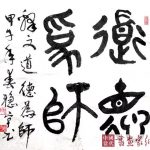 道德
為師
释文道德為師
甲午年姜穩